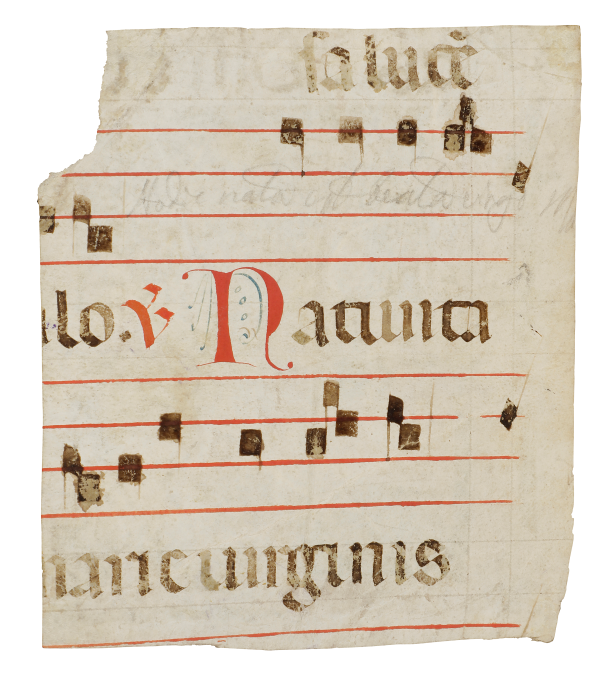 sa lucē
Hodie nata est beata virgo
ulo. ℣ Natiuita
marie uirginis